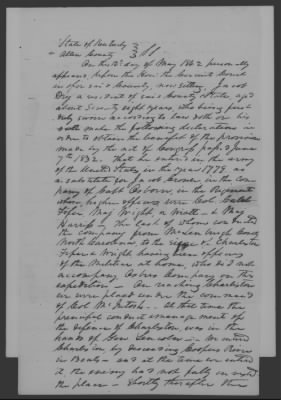 State of Kentucky
Allen County } Sct.
On this 12th day of May 1842 personally
appeared before the Hon. the Circuit Court
in & for said County, now sitting, Jacob
a resident of said County & State, aged
about Seventy eight years who being first
duly sworn according to law doth on his
oath make the following declaration in
order to obtain the benefit of the provision
made by the act of Congress passed June
7th 1832. That he entered in the army
of the United States in the year 1779 as
a substitute for Jacob in the Com
pany of Capt Osborn, in the Regiment
whose higher officers were Col.
Maj Wright, & May
Harris – the last of whom
the company from Mecklenburgh County
North Carolina, to the siege of Charleston
& Wright having been officers
of the Militia at home, who did not
accompany Osborn Company on this
expedition – On reaching Charleston
we were placed under the command
of Col McIntosh. At that time the
principal conduct & management of
the defence of Charleston was in the
hands of Gen Lincoln – we entered
Charleston by Coopers River
in Boats – and at the time we entered
it, the enemy had not fully invested
the place – Shortly thereafter